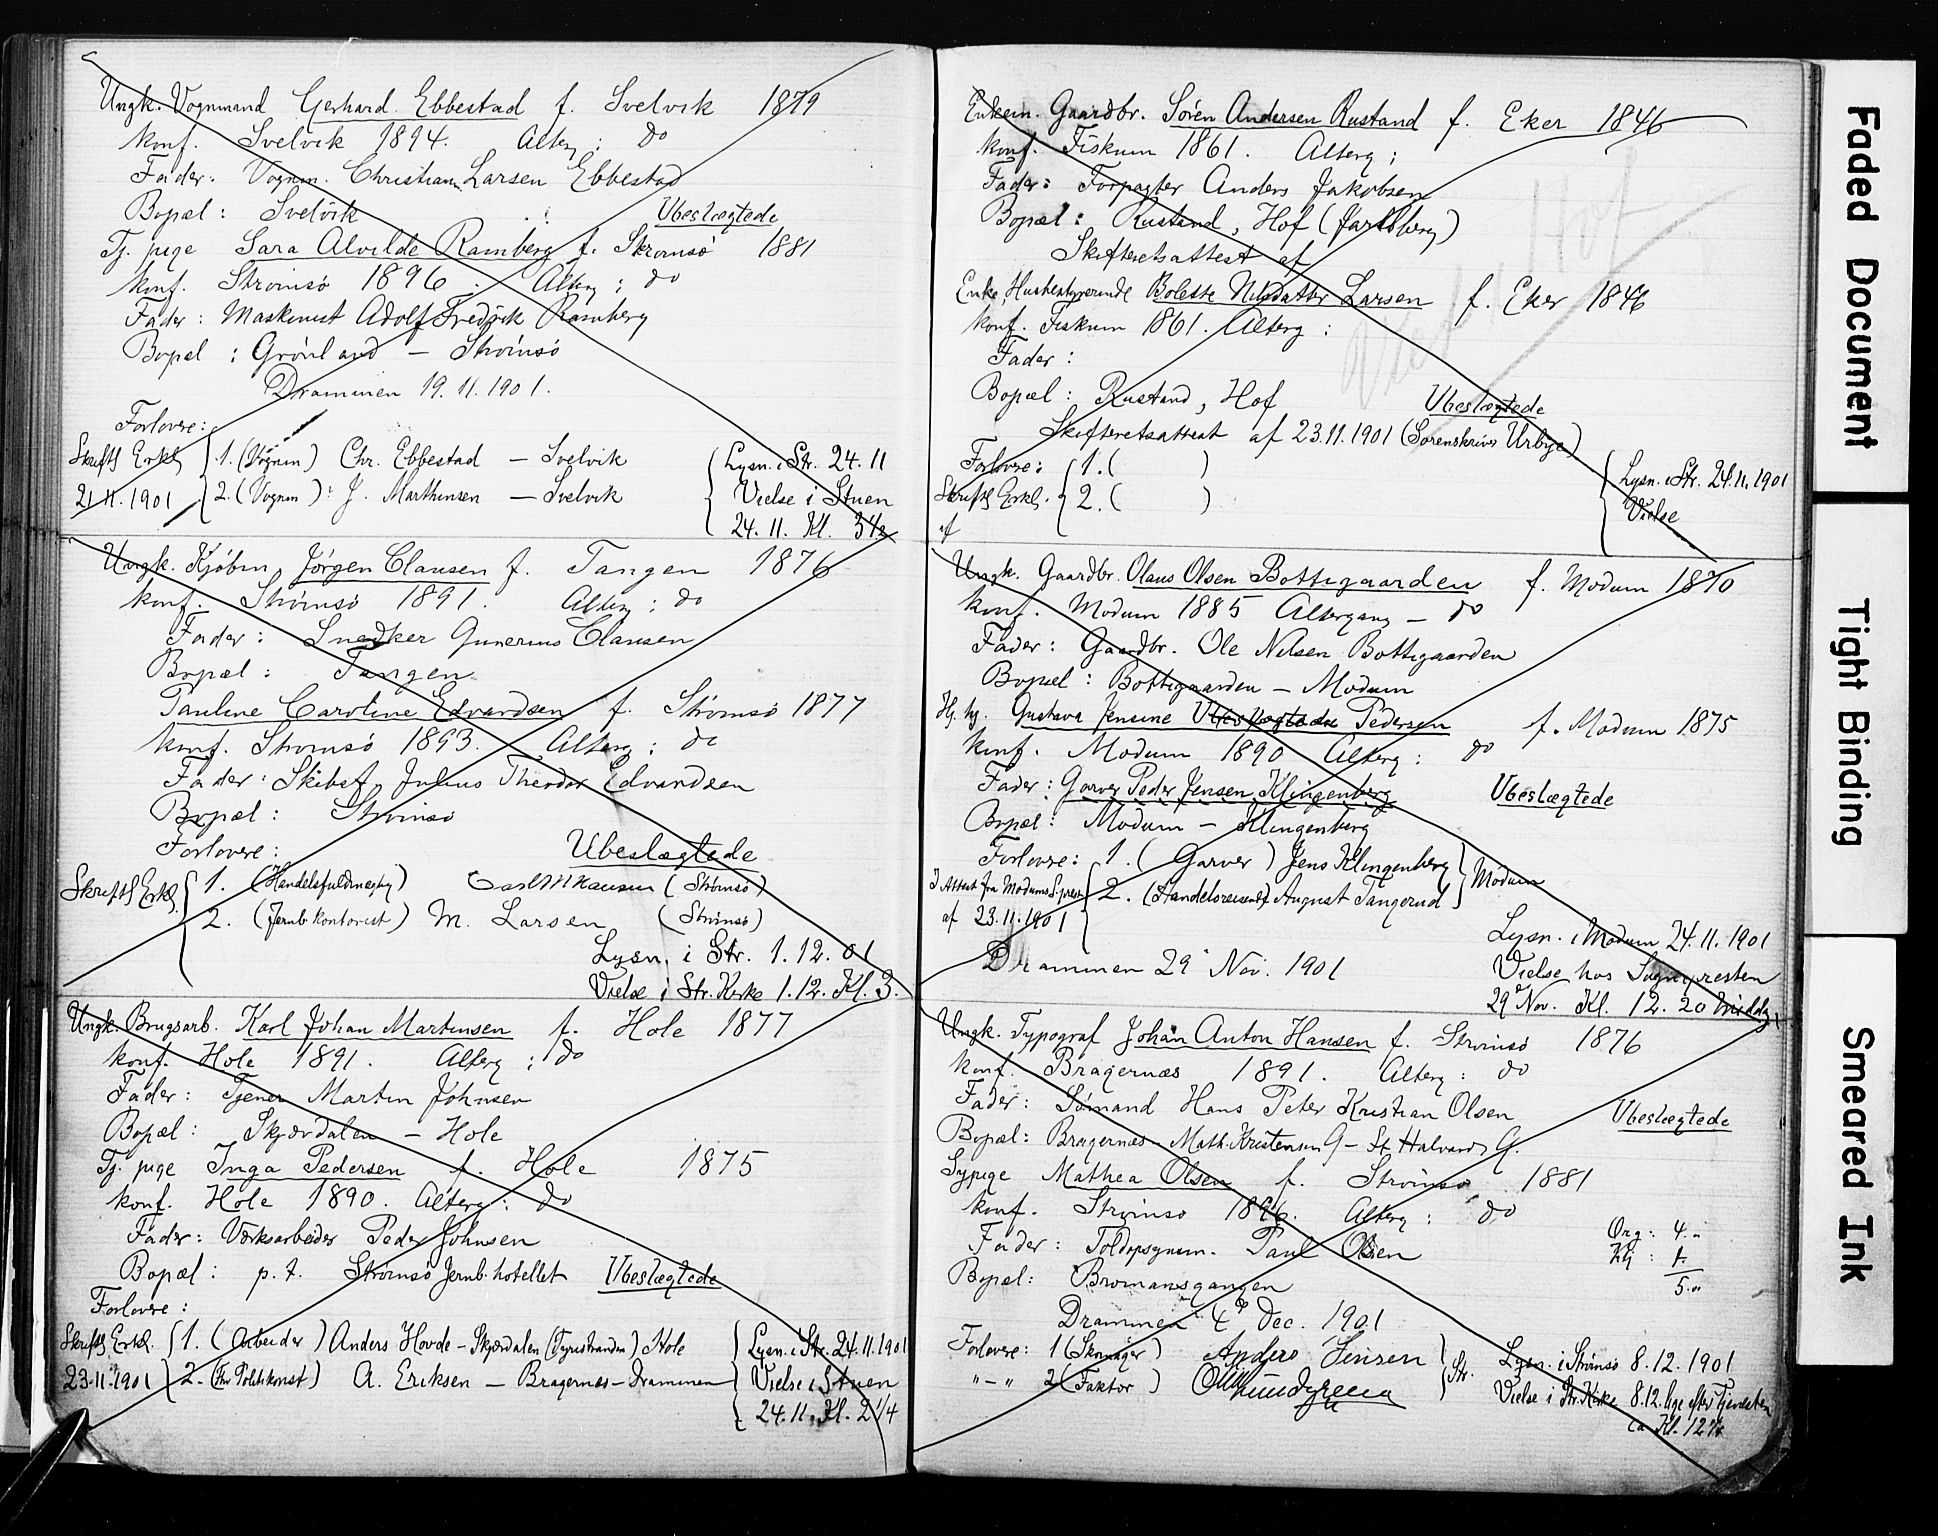 Ungk. Vognmand Gerhard Ebbestad f. Svelvik 1879
konf. Svelvik 1894. Alterg: do
Fader: Vognm. Christian Larsen Ebbestad
Bopæl: Svelvik Ubeslægtede
Tj. pige Sara Alvilde Ramberg f. Strømsö 1881
konf. Strömsö 1896. Alterg: do
Fader: Maskinist Adolf Fredrik Ramberg
Bopæl: Grönland – Strömsö
Drammen 19.11.1901.
Forlovere:
Skriftl Erkl 1. (Vognm) Chr. Ebbestad – Svelvik
21.11.1901 2. (Vognm): J. Marthinsen – Svelvik
Lysn. i Str. 24.11
Vielse i Stuen
24.11. Kl. 3½
Ungk. Kjøbm. Jørgen Clausen f. Tangen 1876
konf. Strømsö 1891. Alterg: do
Fader: Snedker Gunerius Clausen
Bopæl: Tangen
Pauline Caroline Edvardsen f. Strømsö 1877
konf. Strømsö 1893. Alterg: do
Fader: Skibsf. Julius Theodor Edvardsen
Bopæl: Strömsö
Forlovere: Ubeslægtede
Skriftl Erkl. 1. (Handelsfuldmegtig) (Strömsö)
2. (Jernb. kontorist) M. Larsen (Strömsö)
Lysn. i Str. 1.12.01
Vielse i Str. Kirke 1.12. Kl. 3.
Ungk. Brugsarb. Karl Johan Martinsen f. Hole 1877
konf. Hole 1891. Alterg: do
Fader: Tjener Martin Johnsen
Bopæl: Skjærdalen – Hole
Tj. pige Inga Pedersen f. Hole 1875
konf. Hole 1890. Alterg: do
Fader: Værksarbeider Peder Johnsen
Bopæl: p. t. Strömsö Jernb. hotellet Ubeslægtede
Forlovere:
Skriftl Erkl. 1. (Arbeider) Anders Hovde – Skjærdalen (Tyristranden) Hole
23.11.1901 2. A. Eriksen – Bragernes – Drammen
Lysn. i Str. 24.11.1901
Vielse i Stuen
24.11. Kl. 2¼
Enkem. Gaardbr. Sören Andersen Rustand f. Eker 1846
konf. Fiskum 1861. Alterg:
Fader: Forpagter Anders Jakobsen
Bopæl: Rustand, Hof (Jarlsberg)
Skifteretsattest af
Enke, Husbestyrerinde Bolette Nilsdatter Larsen f. Eker 1846
konf. Fiskum 1861. Alterg:
Fader:
Bopæl: Rustand, Hof Ubeslægtede
Skifteretsattest af 23.11.1901 (Sorenskriver Urbye)
Forlovere: 1. ( )
Skriftl Erkl. 2. ( )
af
Lysn. i Str. 24.11.1901
Vielse
Ungk. Gaardbr. Olaus Olsen Bottegaarden f. Modum 1870
konf. Modum 1885 Altergang – do
Fader: Gaardbr. Ole Nilsen Bottegaarden
Bopæl: Bottegaarden – Modum
Hj. hj. Gustava Jensine Ubeslægtede Pedersen f. Modum 1875
konf. Modum 1890 Alterg: do
Fader: Garver Peder Jensen Klingenberg Ubeslægtede
Bopæl: Modum – Klingenberg
Forlovere: 1. (Garver) Jens Klingenberg
I Attest fra Modums S. prest 2. (Handelsreisende) August Tangerud Modum
af 23.11.1901
Lysn. i Modum 24.11.1901
Drammen 29 Nov. 1901 Vielse hos Sognepresten
29 Nov. Kl. 12.20 middag
Ungk. Typograf Johan Anton Hansen f. Strömsö 1876
konf. Bragernæs 1891. Alterg: do
Fader: Sømand Hans Peter Kristian Olsen Ubeslægtede
Bopæl: Bragernæs – Math. Kristensen G – St. Halvards G.
Sypige Mathea Olsen f. Strömsö 1881
konf. Strömsö 1896. Alterg: do
Fader: Toldopsynsm. Paul Olsen
Bopæl: Bromansgangen
Org: 4.
Klj: 1.
5.
Drammen 4 Dec. 1901
Forlovere: 1 (Skomager) Anders Jensen
"–" 2 (Faktor) Str.
Lysn. i Strömsö 8.12.1901
Vielse i Str. Kirke 8.12. lige efter Tjenesten
ca Kl. 12¾
Faded Document
Tight Binding
Smeared Ink